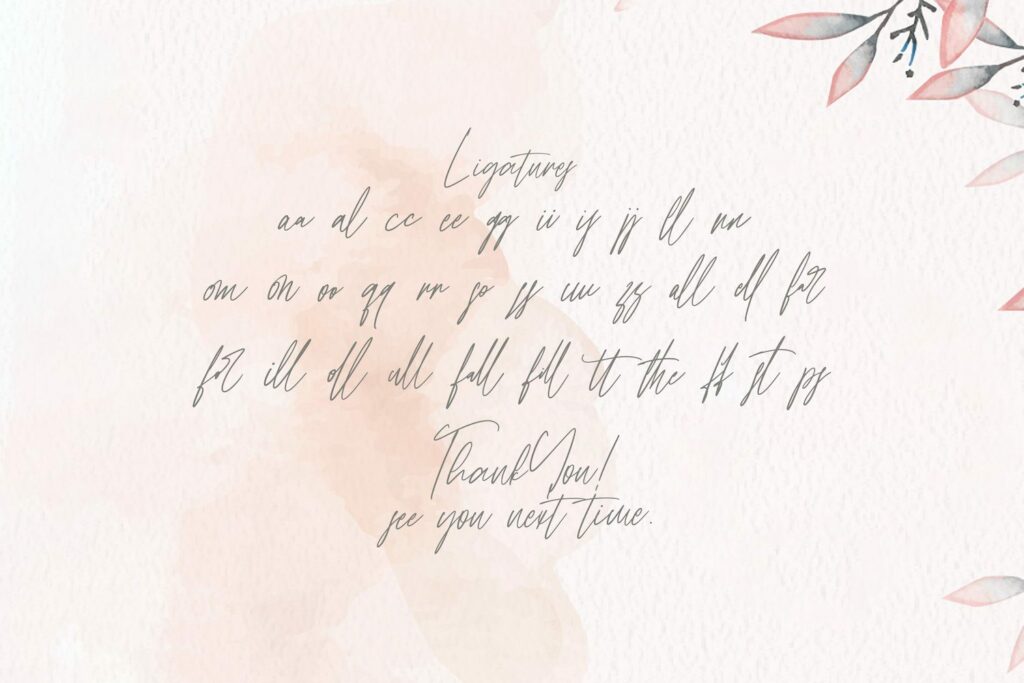 Ligatures
aa al cc ee gg ii is jj ll nn
om on oo qq rr so ss uu zz all ell far
for ill oll ull fall fill tt the ff st ps
Thank You!
see you next time.